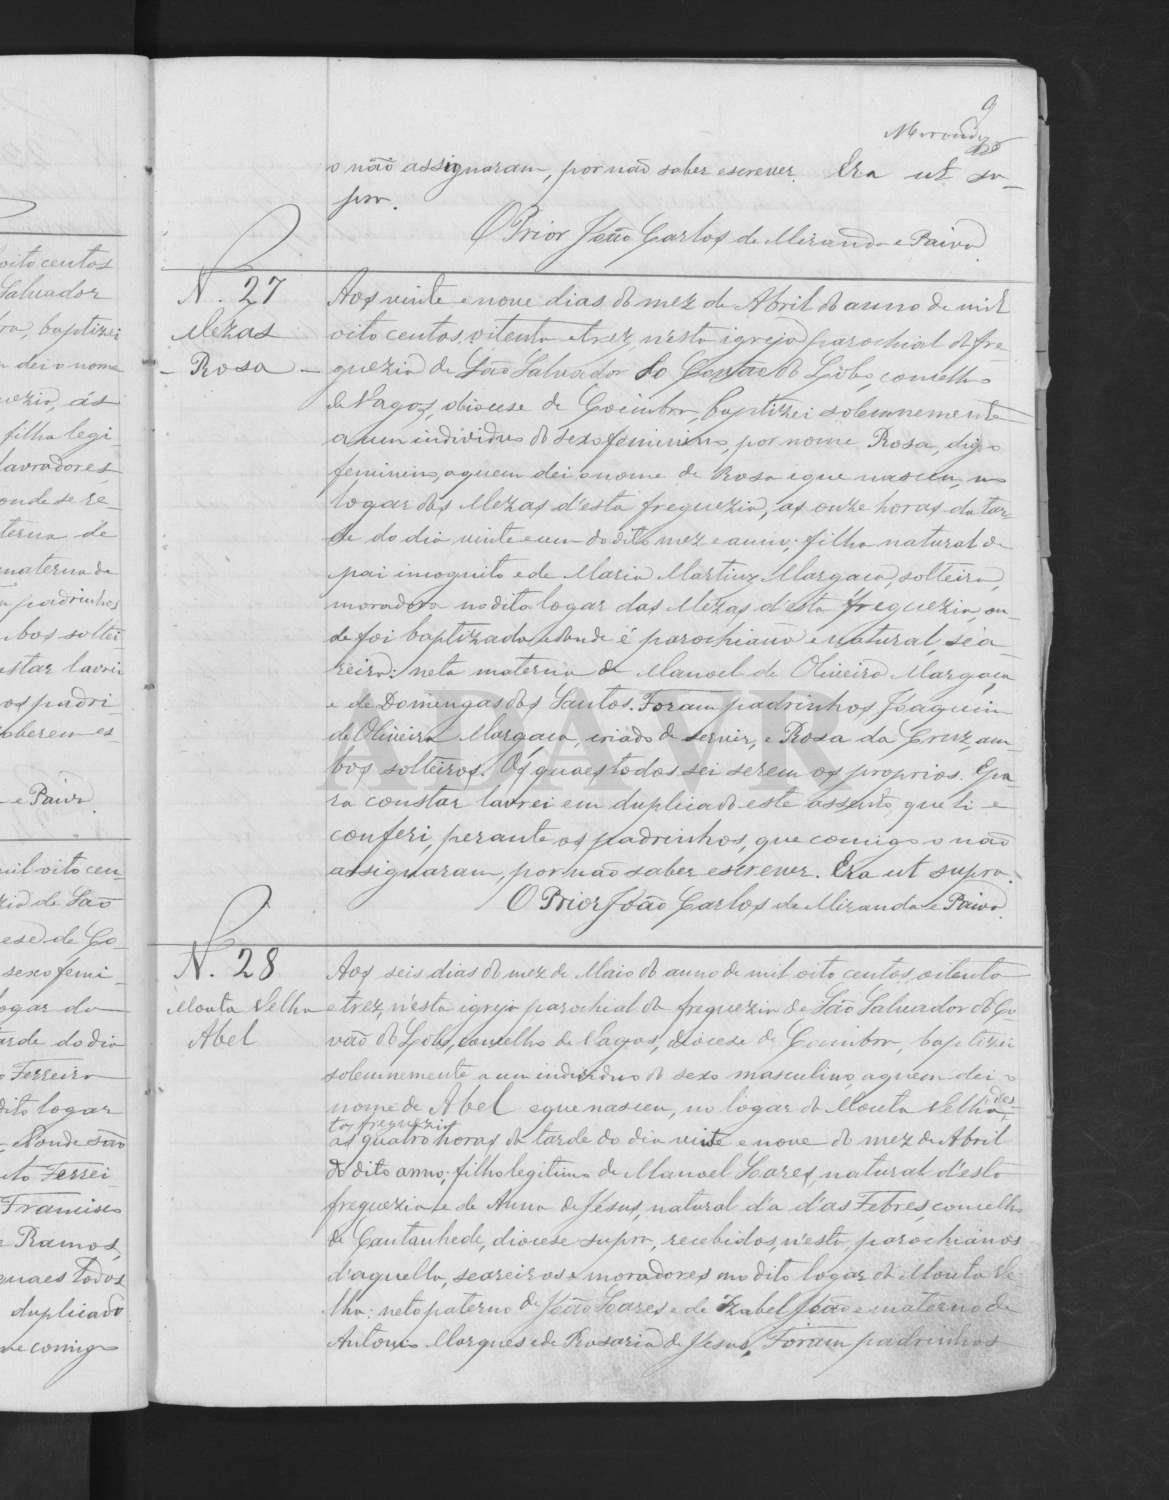 9
Miranda
o não assignaram, por não saber escrever. Era ut su-
pra.
O Prior João Carlos de Miranda e Paiva.
N. 27
Mezas
- Rosa -
Aos vinte e nove dias do mez de Abril do anno de mil
oito centos, oitenta e trez, n'esta igreja parochial da fre-
guezia de São Salvador do Covão do Lobo, concelho
de Vagos, diocese de Coimbra, baptizei solemnemente
a um individuo do sexo feminino, por nome Rosa, digo
feminino, a quem dei o nome de Rosa e que nasceu, no
logar das Mezas d'esta freguezia, as onze horas da tar-
de do dia vinte e um do dito mez e anno; filha natural de
pai incognito e de Maria Martins Margaça, solteira,
moradora no dito logar das Mezas d'esta freguezia, on-
de foi baptizada e donde é parochiana e natural, sea-
reira: neta materna de Manoel de Oliveira Margaça
e de Domingas dos Santos. Foram padrinhos Joaquim
de Oliveira Margaça, criado de servir, e Rosa da Cruz, am-
bos solteiros. Os quaes todos sei serem os proprios. E pa-
ra constar lavrei em duplicado este assento, que li e
conferi, perante os padrinhos, que comigo o não
assignaram, por não saber escrever. Era ut supra.
O Prior João Carlos de Miranda e Paiva.
N. 28
Mouta Velha
Abel
Aos seis dias do mez de Maio do anno de mil oito centos, oitenta
e trez, n'esta igreja parochial da freguezia de São Salvador do Co-
vão do Lobo, concelho de Vagos, diocese de Coimbra, baptizei
solemnemente a um individuo do sexo masculino, a quem dei o
nome de Abel e que nasceu, no logar da Mouta Velha, des-
ta freguezia
as quatro horas da tarde do dia vinte e nove do mez de Abril
do dito anno; filho legitimo de Manoel Soares, natural d'esta
freguezia e de Anna de Jesus, natural d'a d'as Febres, concelho
de Cantanhede, diocese supra, recebidos, n'esta, parochianos
d'aquella, seareiros e moradores no dito logar da Mouta Ve-
lha: neto paterno de João Soares e de Izabel João e materno de
Antonio Marques e de Rosaria de Jesus. Foram padrinhos
oito centos
Salvador
baptizei
dei o nome
ás
filha legi-
lavradores,
onde se re-
terna de
materna de
padrinhos
bos soltei-
star lavrei
os padri-
e Paiva.
mil oito cen-
de São
ese de Co-
sexo femi-
ogar da
arde do dia
Ferreira
dito logar
donde são
Ferrei-
Francisco
e Ramos,
quaes todos
duplicado
ue comigo
ADAVR